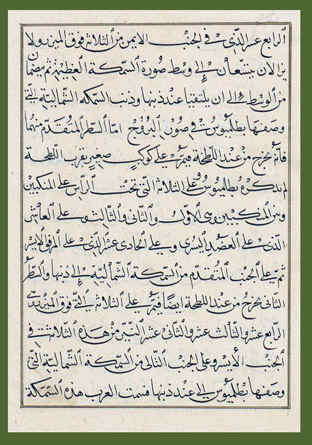 الرابع عشر الذي في الجنب الايمن من الثلاثة فوق الميزر ولا
يزالان يتسعان الى وسط صورة السمكة العظيمة ثم ينضمان
من الوسط والى ان يلتقيا عند ذنبها وذنب السمكة الشمالية التي
وصفها بطلميوس في صور البروج اما السطر المتقدم منهما
فانه يخرج من عند اللطخة فيمر على كوكب صغير بقرب اللطخة
لم يذكره بطلميوس على الثلاثة التي تحت الراس على المنكبين
ومن المنكبين وهي الاول والثاني والثالث ثم على العاشر
الذي على العضد اليسرى وعلى الحادي عشر الذي على المرفق الايسر
ثم على الجنب المتقدم من السمكة الشمالية الى ذنبها والسطر
الثاني يخرج من عند اللطخة ايضا فيمر على الثلاثة التي فوق الميزر وهي
الرابع عشر والثالث عشر والثاني عشر النير من هذه الثلاثة في
الجنب الايسر وعلى الجنب التالي من السمكة الشمالية التي
وصفها بطلميوس الى عند ذنبها فسمت العرب هذه السمكة